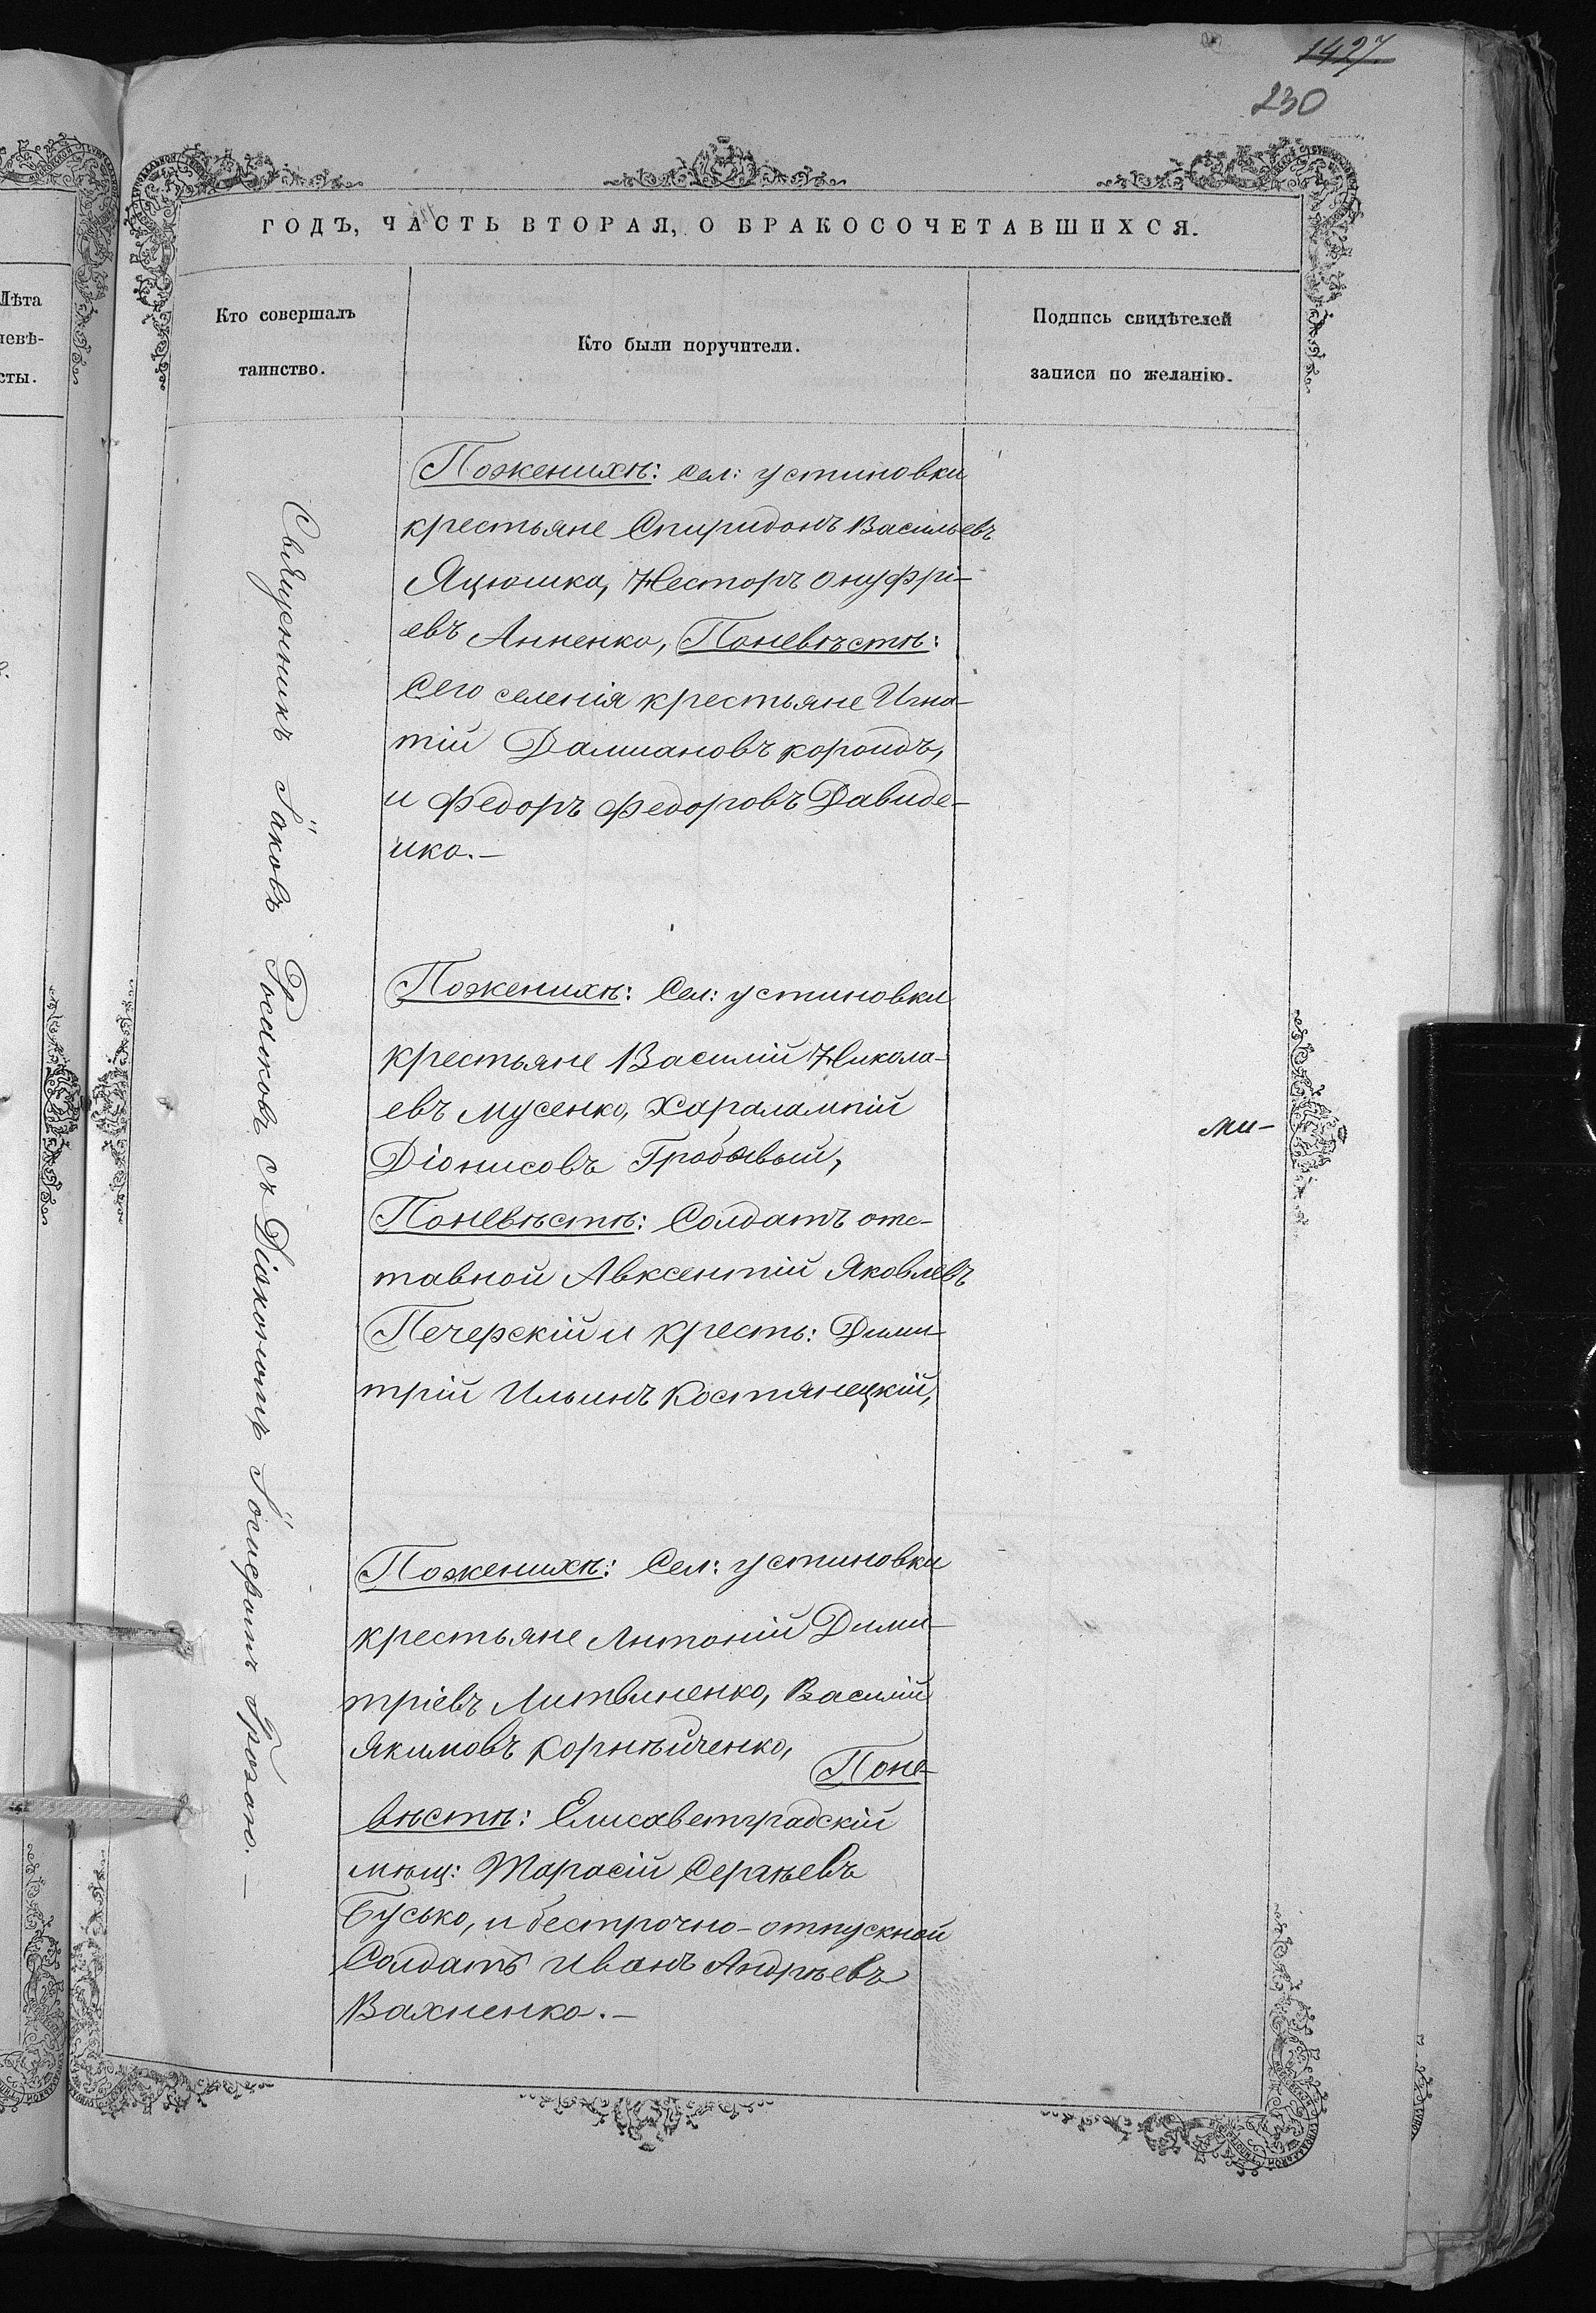 1427.
230
ГОДЪ, ЧАСТЬ ВТОРАЯ, О БРАКОСОЧЕТАВШИХСЯ.
Лѣта
невѣ-
сты.
Кто совершалъ
таинство.
Кто были поручители.
Подпись свидѣтелей
записи по желанію.
Священникъ Іаковъ Росаковъ съ Діакономъ Іосифомъ Грозою.—
По женихѣ: Сел: Устиновки
крестьяне Спиридонъ Васильевъ
Яцюшка, Несторъ Онуфрі-
евъ Анненко, По невѣстѣ:
Сего селенія крестьяне Игна-
тій Даміановъ Короидъ,
и Федоръ Федоровъ Давиде-
нко.—
По женихѣ: Сел: Устиновки
крестьяне Василій Никола-
евъ Мусенко, Харалампій
Діонисовъ Гробовый,
По невѣстѣ: Солдатъ отс-
тавной Авксентій Яковлевъ
Печерскій и кресть: Дими-
трій Ильинъ Костянецкій,
ми-
По женихѣ: Сел: Устиновки
крестьяне Антоній Дими-
тріевъ Литвиненко, Василій
Якимовъ Корнѣйченко,
По не-
вѣстѣ: Елисаветградскій
мѣщ: Тарасій Сергѣевъ
Бусько, и бестрочно-отпускной
Солдатъ Иванъ Андрѣевъ
Вахненко.—